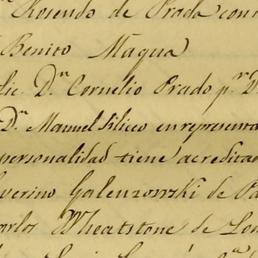 Rosendo de Prada con
Benito Maqua
lic. D.n Cornelio Prado p.r D.
D.n Manuel Silico en representa
personalidad tiene acreditad
verino Galenzowski de Pa
arlos Wheatstone de Lon